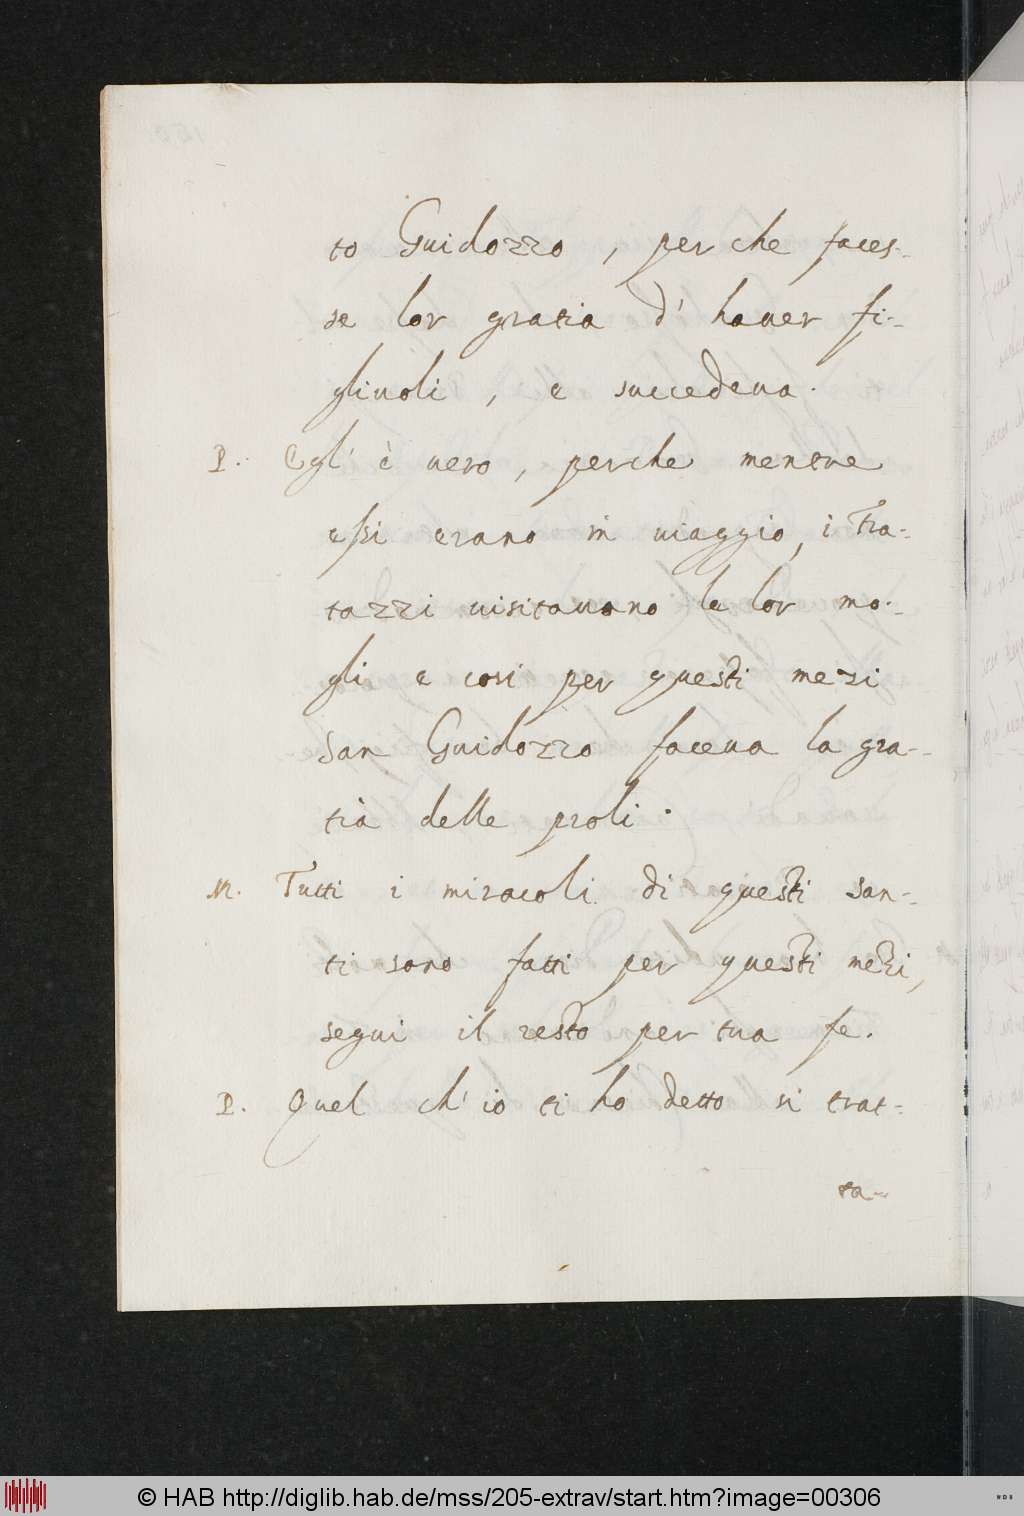 to Guidozzo, per che faces-
se lor gratia d' hauer fi-
gliuoli, e succedeua.
P. Egl' è uero, perche mentre
essi erano in uiaggio, i Fra-
tazzi uisitauano le lor mo-
gli e cosi per questi mezi
san Guidozzo faceua la gra-
tia delle proli.
M. Tutti i miracoli di questi san-
ti sono fatti per questi mezi,
segui il resto per tua fe.
P. Quel ch' io ti ho detto si trat-
ta-
© HAB http://diglib.hab.de/mss/205-extrav/start.htm?image=00306